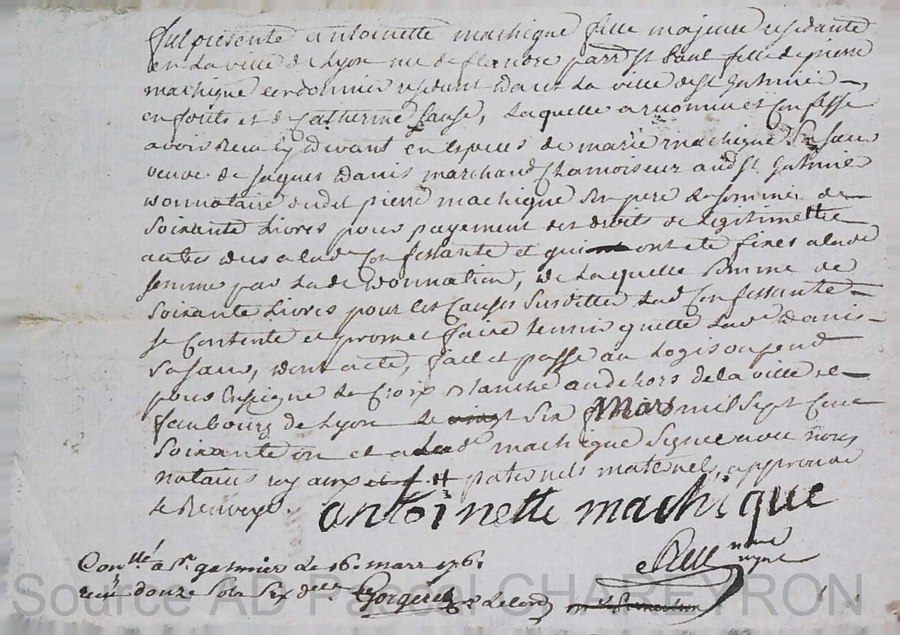 fut présente antoinette machique fille majeure résidante
en la ville de Lyon rue de flandre parr. st paul fille de pierre
machique cordonnier résidant dans la ville de st galmier
en forêts et de Catherine Causse, laquelle a reconnu et confessé
avoir reçu cy devant en espèces de marie machique sa sœur
veuve de jaques Danis marchand chamoiseur aud. st galmier
donnataire dudit pierre machique son père la somme de
soixante livres pour payement des droits de légitime
autres dus a lad. confessante et qui ont été fixés a lade
femme par lade donnation, de laquelle somme de
soixante livres pour les causes susdittes lad. confessante
se contente et promet faire tenir quitte lad. ve Danis
sa sœur, dont acte, fait et passé au logis ou pend
pour enseigne la Croix blanche au dehors de la ville et
faubourg de Lyon le six Mars mil sept cent
soixante un et a lade machique signé avec nous
notaires royaux paternels maternels, approuvé
le Renvoye. antoinette machique
Conllé a st galmier le 16 mars 1761
reçu douze sols six den
Source AD Pascal CHAREYRON